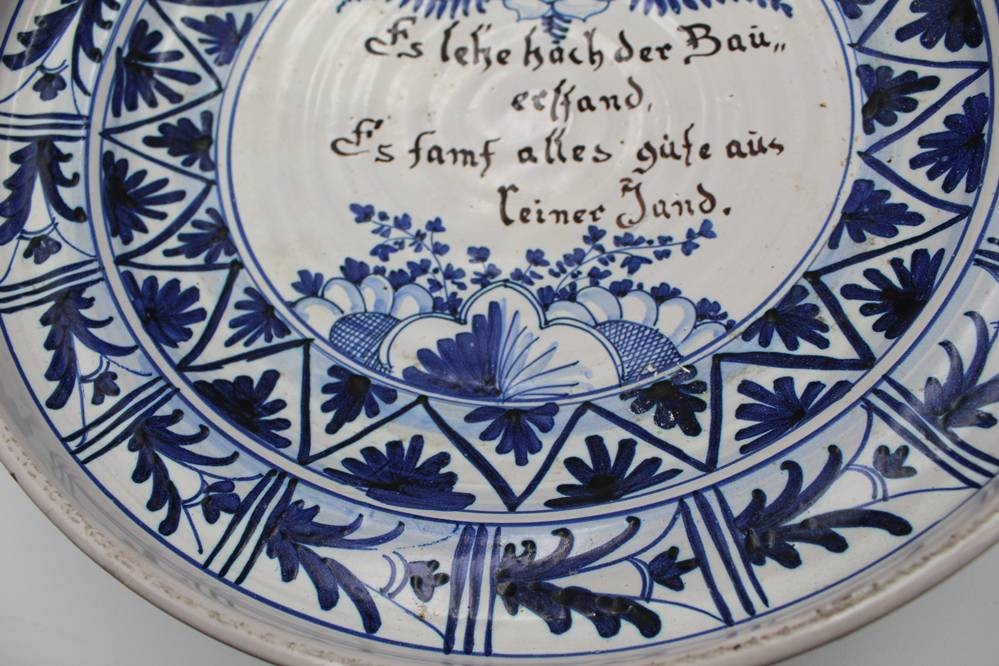 Es lebe hoch der Bau„
erstand,
Es kamt alles gute aus
seiner Hand.